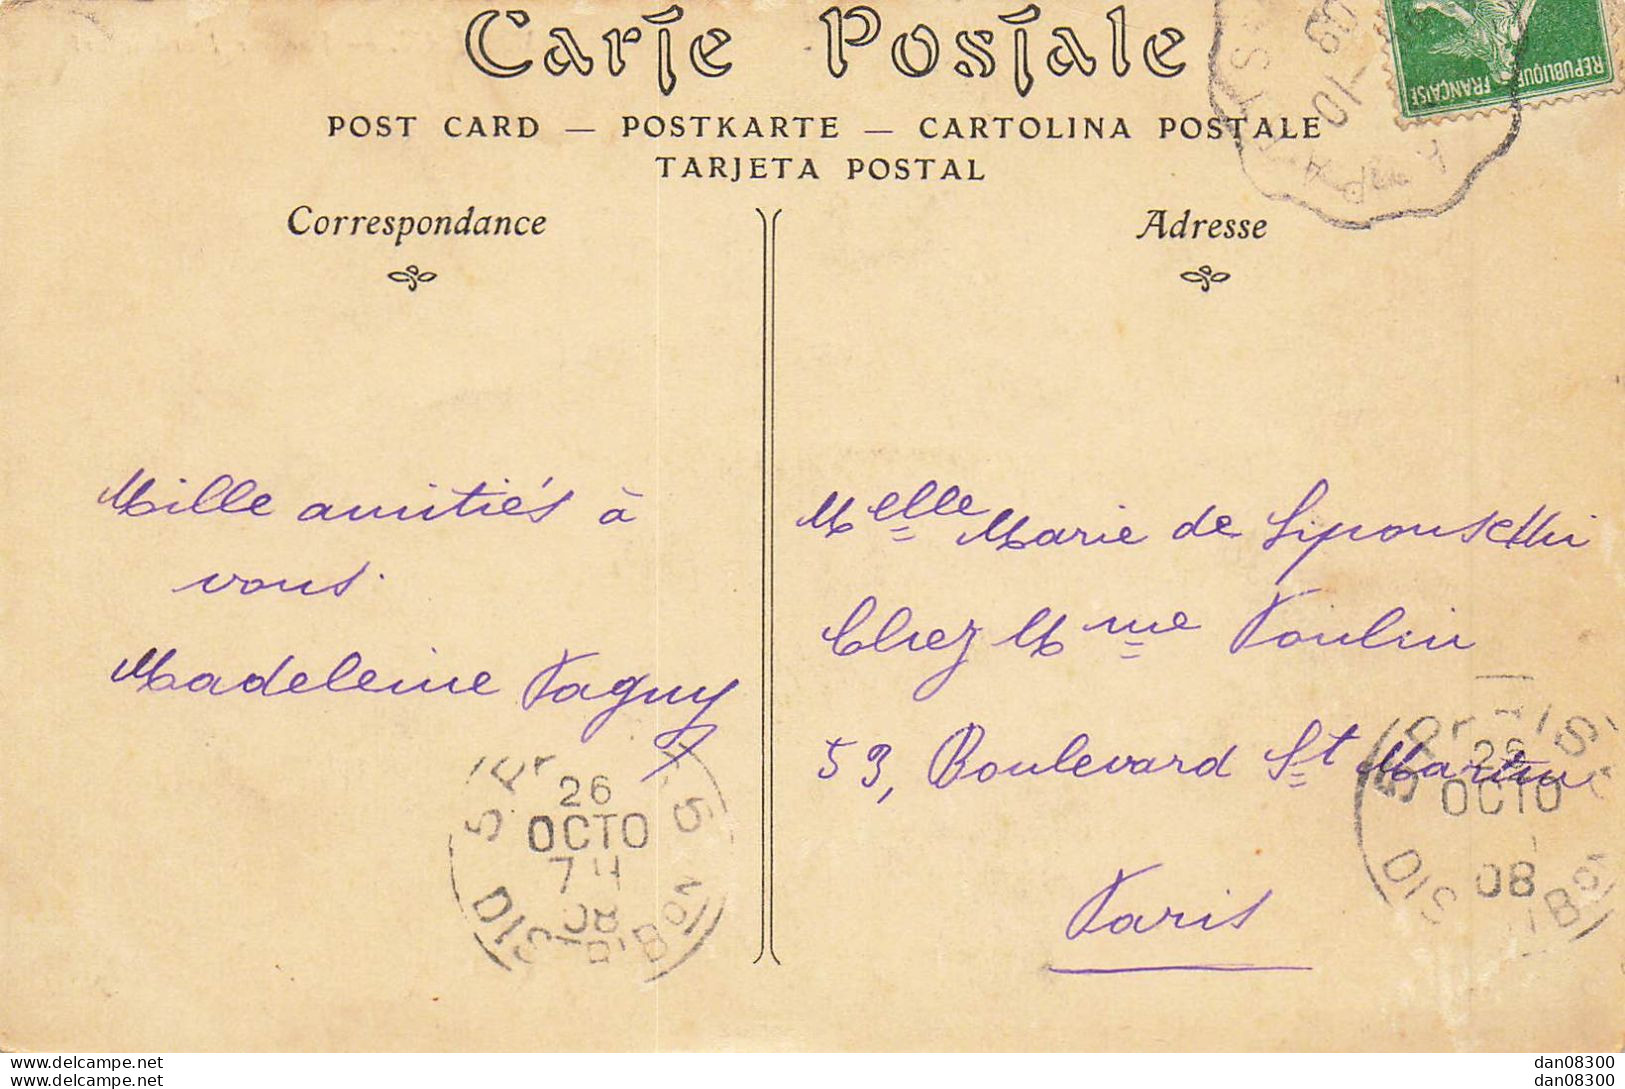 Carte Postale
POST CARD — POSTKARTE — CARTOLINA POSTALE
TARJETA POSTAL
Correspondance
Adresse
REPUBLIQUE FRANÇAISE
Mille amitiés à
vous.
Madeleine
Melle Marie de
Chez Mme Poulin
53, Boulevard St Martin
Paris
26
OCTO
08
DISTRIBon
26
OCTO
7 H
08
DISTRIBon
www.delcampe.net
dan08300
www.delcampe.net
dan08300